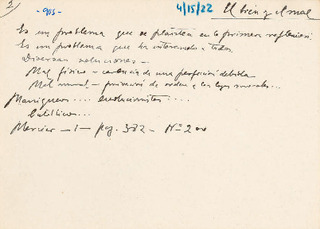 2
-905-
4/15/22
El bien y el mal
Es un problema que se plantea en la primera reflexión.
Es un problema que ha interesado a todos
Diversas soluciones -
Mal físico - carencia de una perfección debida
Mal moral - privación de orden y las leyes morales...
Maniqueos.... evolucionistas....
Católicos...
Mercier - 1 - pag. 382 - Nº 200